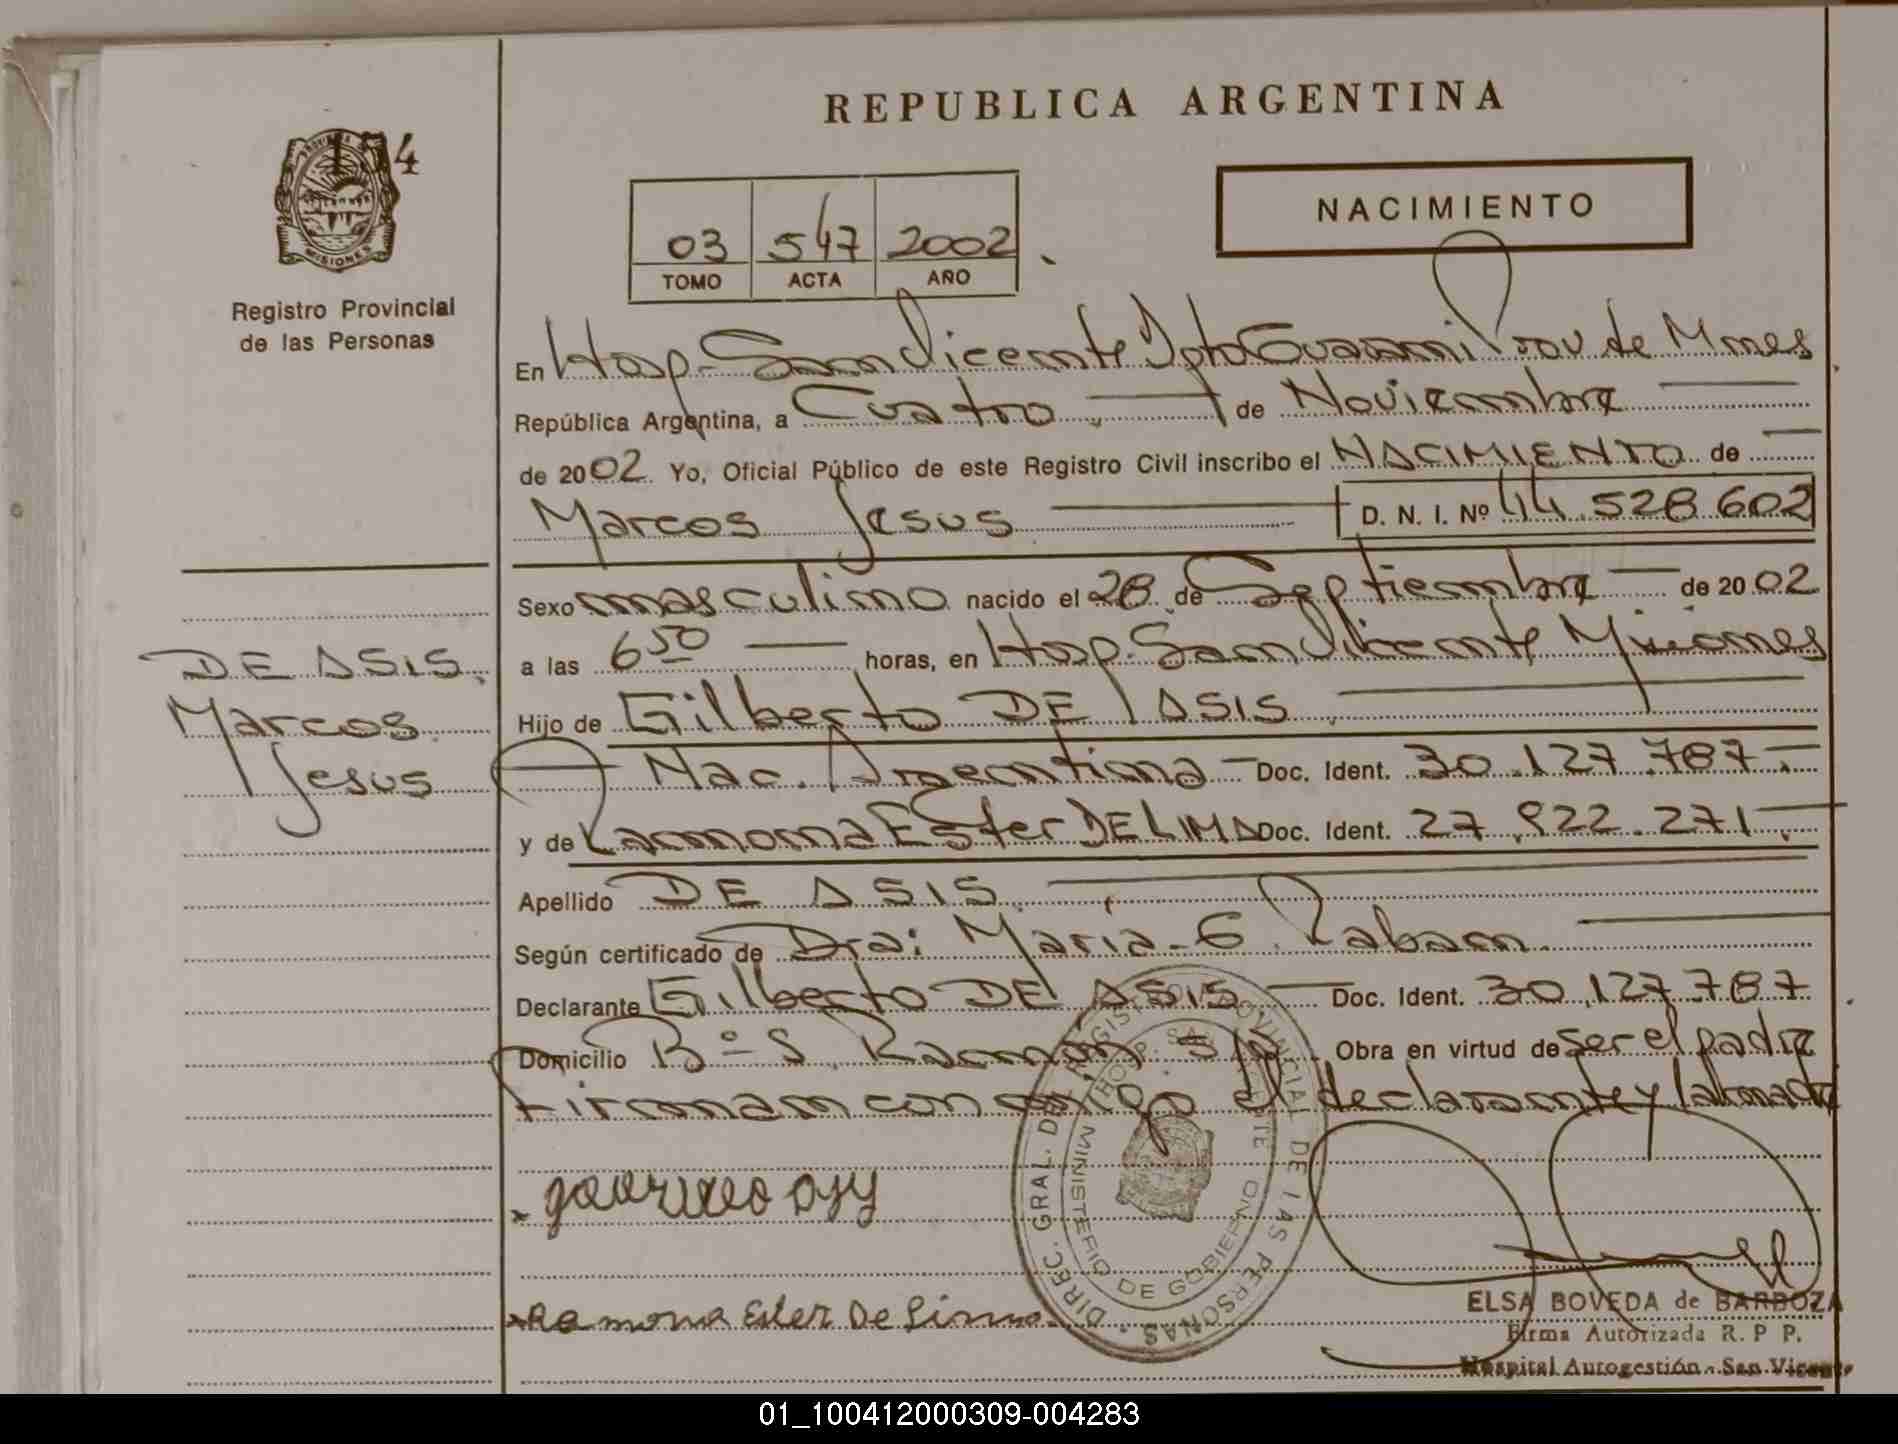 REPUBLICA ARGENTINA
4
PROVINCIA
MISIONES
Registro Provincial
de las Personas
03 547 2002
TOMO ACTA AÑO
NACIMIENTO
En Hosp. San Vicente Dpto Guarani Prov. de Mnes
República Argentina, a Cuatro de Noviembre
de 2002 Yo, Oficial Público de este Registro Civil inscribo el NACIMIENTO de
Marcos Jesus D. N. I. Nº 44.528.602
Sexo masculino nacido el 28 de Septiembre de 2002
a las 6 50 horas, en Hosp. San Vicente Misiones
Hijo de Gilberto DE ASIS
Nac. Argentina Doc. Ident. 30.127.787
y de Ramona Ester DE LIMA Doc. Ident. 27.922.271
Apellido DE ASIS
Según certificado de Dra: Maria G. Raban
Declarante Gilberto DE ASIS Doc. Ident. 30.127.787
Domicilio Bº S. Ramón s/n Obra en virtud de ser el padre
Firman conmigo el declarante y la madre
DE ASIS
Marcos
Jesus
DIREC. GRAL. DEL REGISTRO PROVINCIAL DE LAS PERSONAS
HOSP. SAN VICENTE
MINISTERIO DE GOBIERNO
Ramona Ester De Lima
ELSA BOVEDA de BARBOZA
Firma Autorizada R. P P.
Hospital Autogestión - San Vicente
01_100412000309-004283